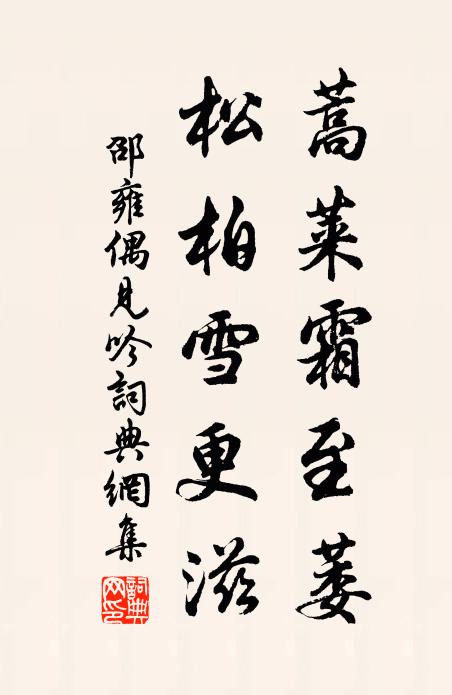 蒿莱霜至萎
松柏雪更滋
邵雍偶見吟詞典網集
詞典網印